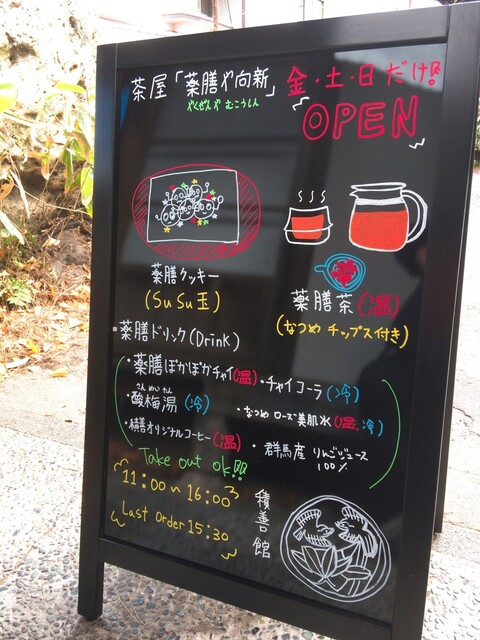 茶屋「薬膳や向新」金・土・日だけ!!
やくぜんや むこうしん
OPEN
薬膳クッキー
(SuSu玉)
薬膳茶(温)
(なつめチップス付き)
・薬膳ドリック(Drink)
・薬膳ぽかぽかチャイ(温)
・チャイコーラ(冷)
さんめいたん
・酸梅湯(冷)
・なつめローズ美肌水(温,冷)
・積善オリジナルコーヒー(温)
・群馬産りんごジュース
100%
Take out ok!!
11:00~16:00
Last Order 15:30
積善館